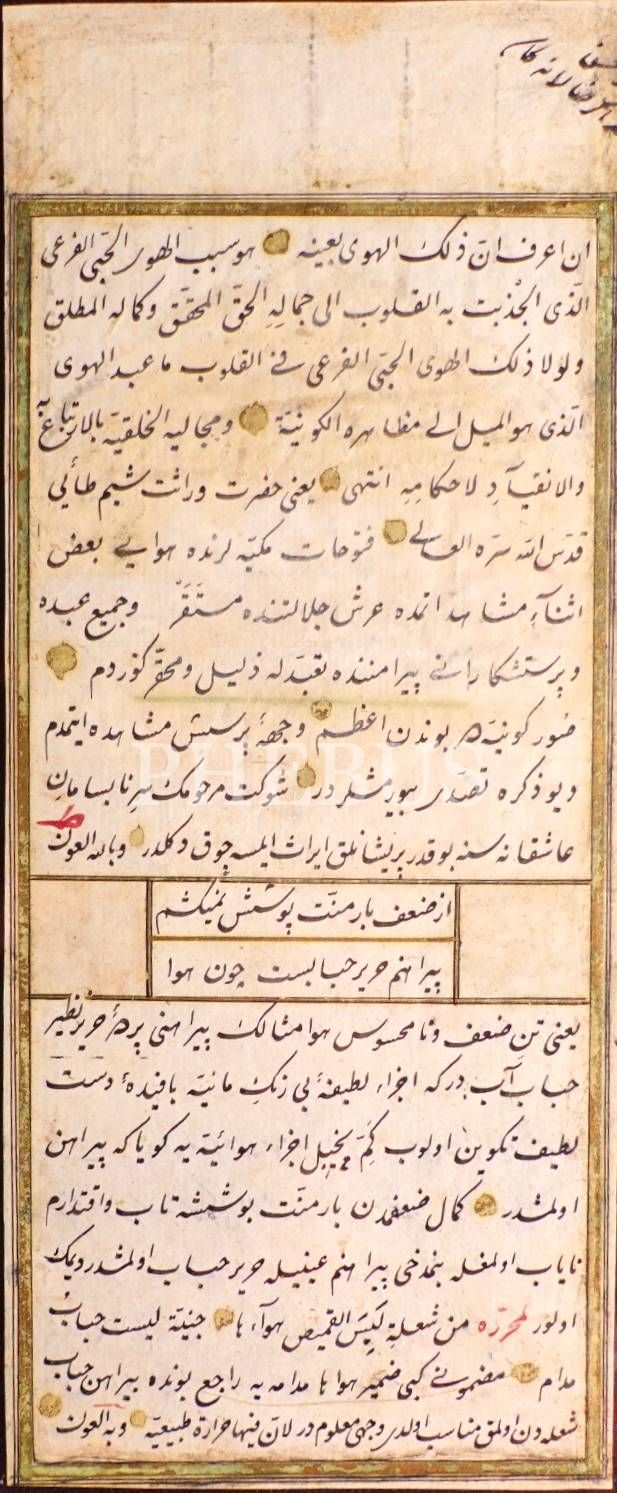 ان اعرف ان ذلك الهوى بعينه هو سبب الهوى الحبّى الفرعى
الّذى انجذبت به القلوب الى جماله الحقّ المحقّق وكماله المطلق
ولولا ذلك الهوى الحبّى الفرعى فى القلوب ما عبد الهوى
الّذى هو الميل الى مظاهره الكونيّة ومجاليه الخلقيّة بالاتّباع به
والانقيادِ لاحكامِهِ انتهى يعنى حضرت وراثت شيم طائى
قدّس الله سرّه العالى فتوحات مكيّه لرنده هوايى بعض
اثناءِ مشاهداتمده عرش جلالتنده مستقرّ وجميع عبده
وپرستشكارانى پيرامننده تعبدله ذليل ومحقّر كوردم
صور كونيّه ده بوندن اعظم وجههٔ پرستش مشاهده ايتمدم
ديو ذكره تصدّى بيورمشلردر شوكت مرحومك سرنابسامان
عاشقانه سنه بوقدر پريشانلق ايراث ايلسه چوق دكلدر وبالله العون
از ضعف بار منّت پوشش نميكشم
پيراهنم حرير حبابست چون هوا
يعنى تن ضعف ونامحسوس هوا مثالك پيراهنى پردهٔ حرير نظير
حباب آب دركه اجزاء لطيفهٔ بى رنك مائيّه بافيدهٔ دست
لطيف تكوين اولوب اجزاء هوائيّه يه كويا كه پيراهن
اولمشدر كمال ضعفمدن بار منّت پوششه تاب واقتدارم
ناياب اولمغله بنم دخى پيراهنم عينيله حرير حباب اولمشدر ديمك
اولور لمحرّره من شعلةٍ لَبِسَ القميص هوآءها جنيّة ليست حبابُ
مدام مضمونى كبى ضمير هواها مدامه يه راجع بونده پيراهن حباب
شعله دن اولمق مناسب اولدى وجهى معلومدر لانّ فيها حرارة طبيعيّة وبه العون